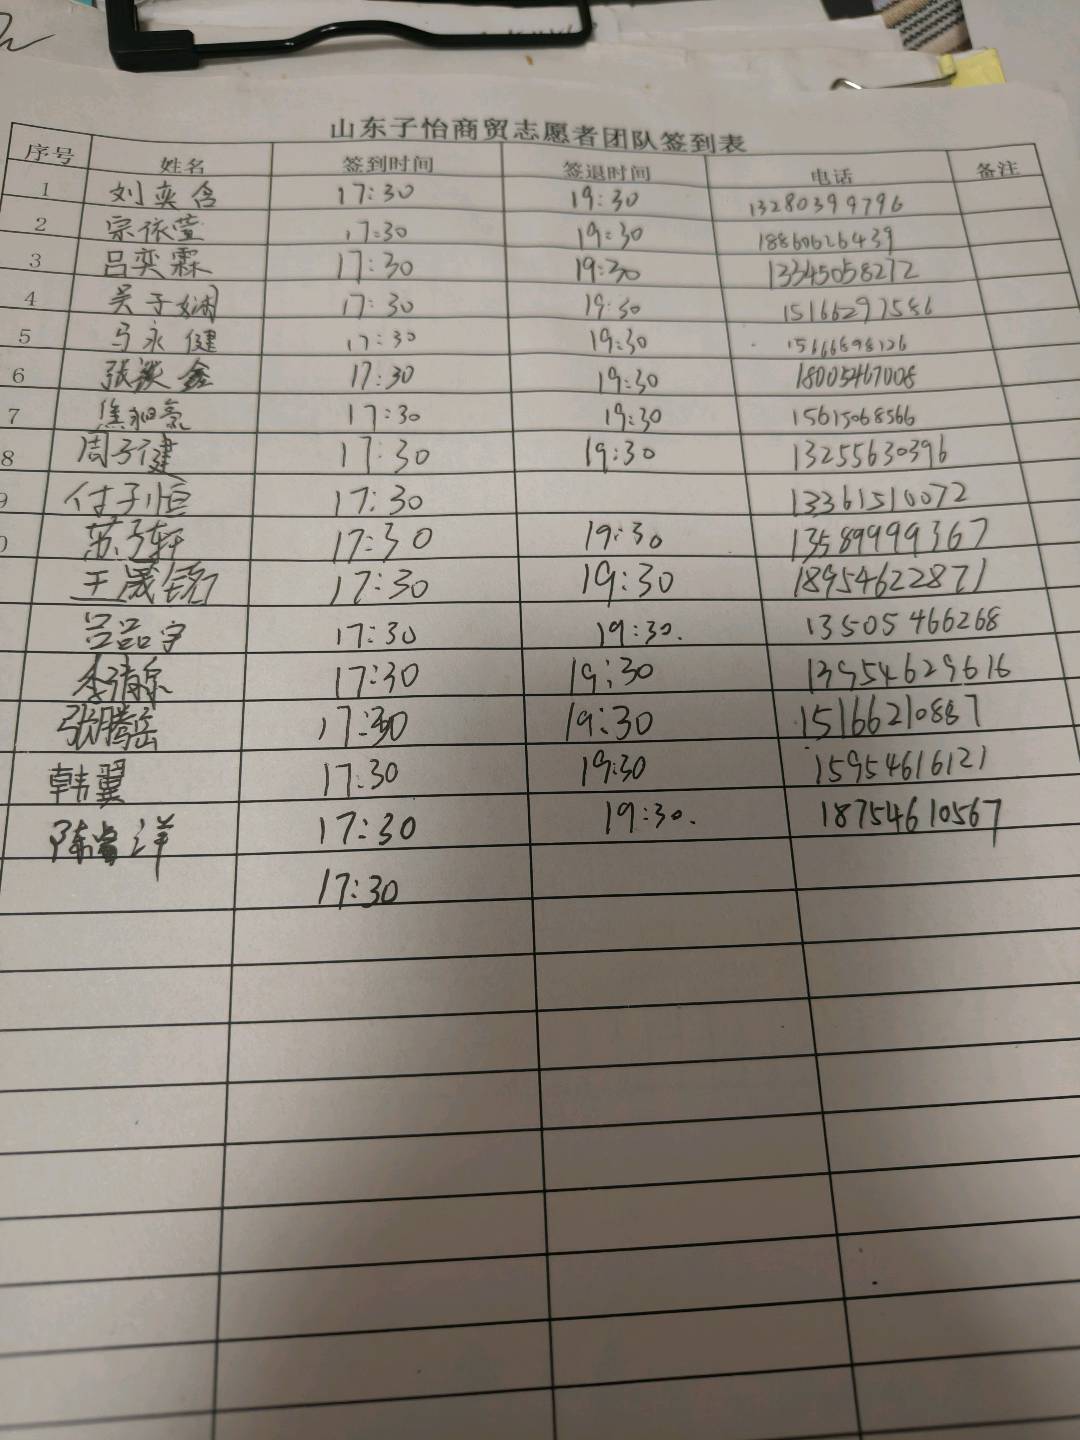 山东子怡商贸志愿者团队签到表
序号 姓名 签到时间 签退时间 电话 备注
1 刘奕含 17:30 19:30 13280399796
2 宗依萱 17:30 19:30 18860626439
3 吕奕霖 17:30 19:30 13345058272
4 吴于娴 17:30 19:30 15166297586
5 马永健 17:30 19:30 15166698126
6 张 鑫 17:30 19:30 18005467008
7 焦 17:30 19:30 15615068566
8 周子健 17:30 19:30 13255630396
9 付子恒 17:30 13361510072
苏子轩 17:30 19:30 13589999367
王晟锐 17:30 19:30 18954622871
吕品宇 17:30 19:30. 13505466268
李清泉 17:30 19:30 13954629616
张腾岳 17:30 19:30 15166210887
韩翼 17:30 19:30 15954616121
陈 洋 17:30 19:30. 18754610567
17:30